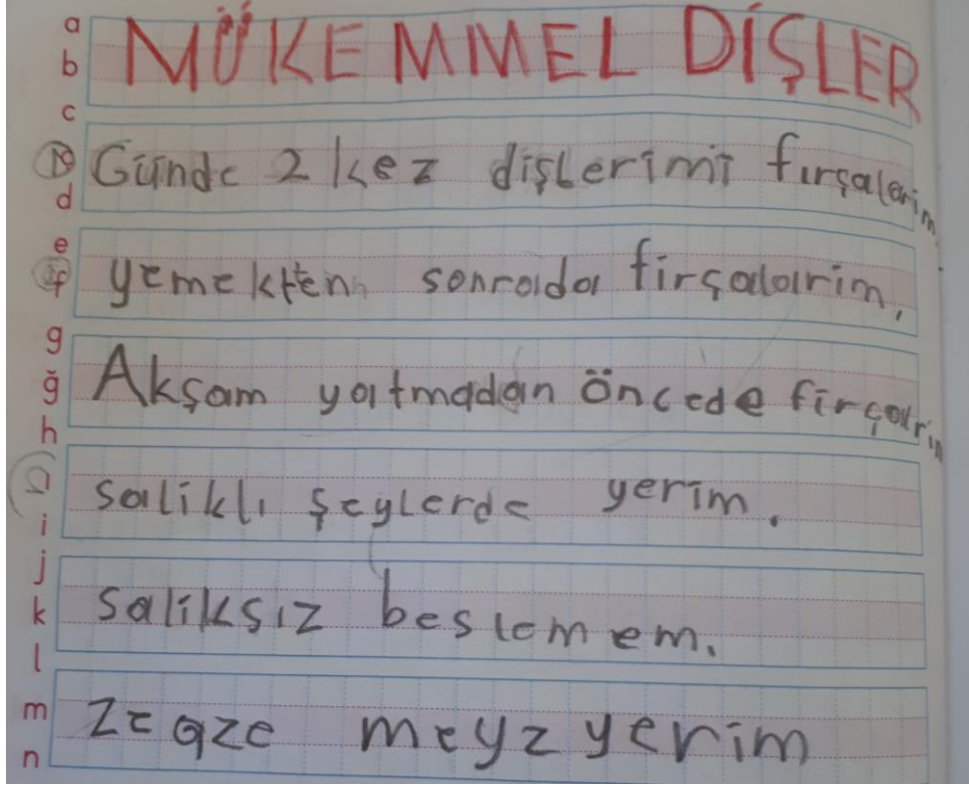 a
b
c
d
e
f
g
ğ
h
ı
i
j
k
l
m
n
MÜKEMMEL DİŞLER
Günde 2 kez dişlerimi fırsalarim.
yemekten sonrada firçalarim.
Akşam yatmadan öncede firçarin
salikli şeylerde yerim.
saliksız beslemem.
zeqze meyz yerim